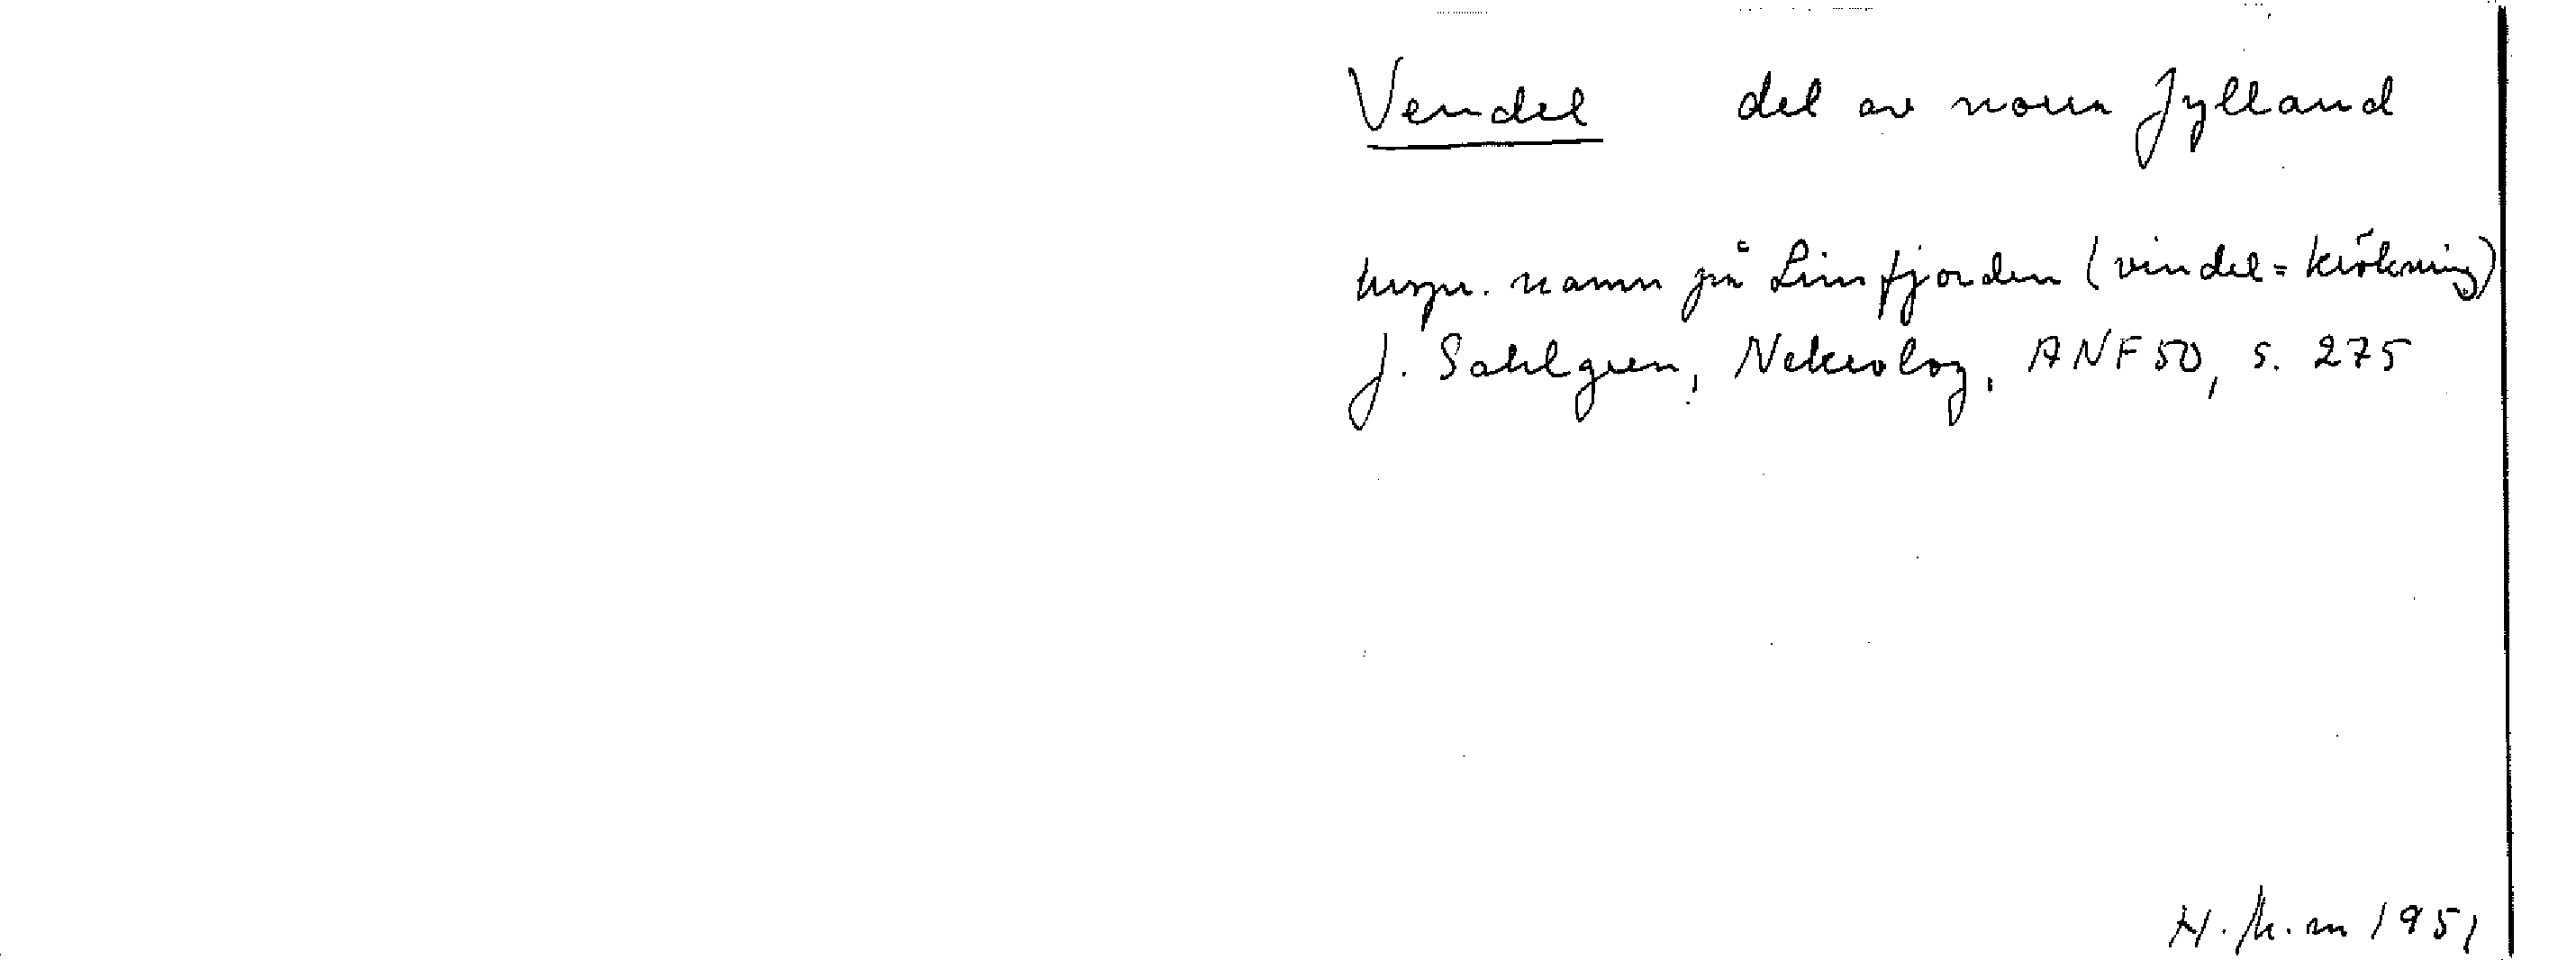 Vendel del av norra Jylland
urspr. namn på Limfjorden (vindel = krökning)
J. Sahlgren, Nekrolog, ANF 50, s. 275
1951